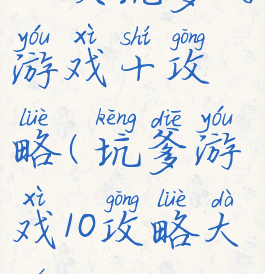 yóu xì shí gōng
游戏十攻
lüè kēng diē yóu
略(坑爹游
xì gōng lüè dà
戏10攻略大